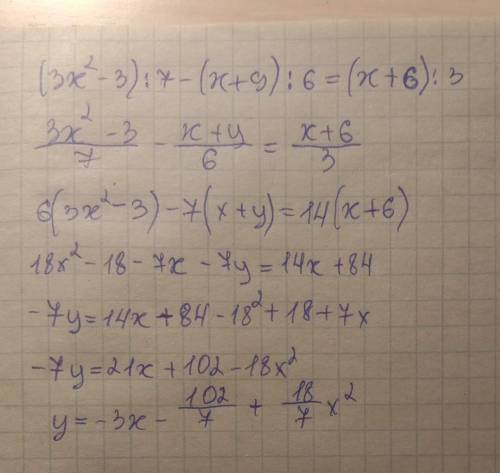 (3x²-3):7-(x+y):6=(x+6):3
\frac{3x²-3}{7} - \frac{x+y}{6} = \frac{x+6}{3}
6(3x²-3)-7(x+y)=14(x+6)
18x²-18-7x-7y=14x+84
-7y=14x+84-18²+18+7x
-7y=21x+102-18x²
y=-3x-\frac{102}{7}+\frac{18}{7}x²